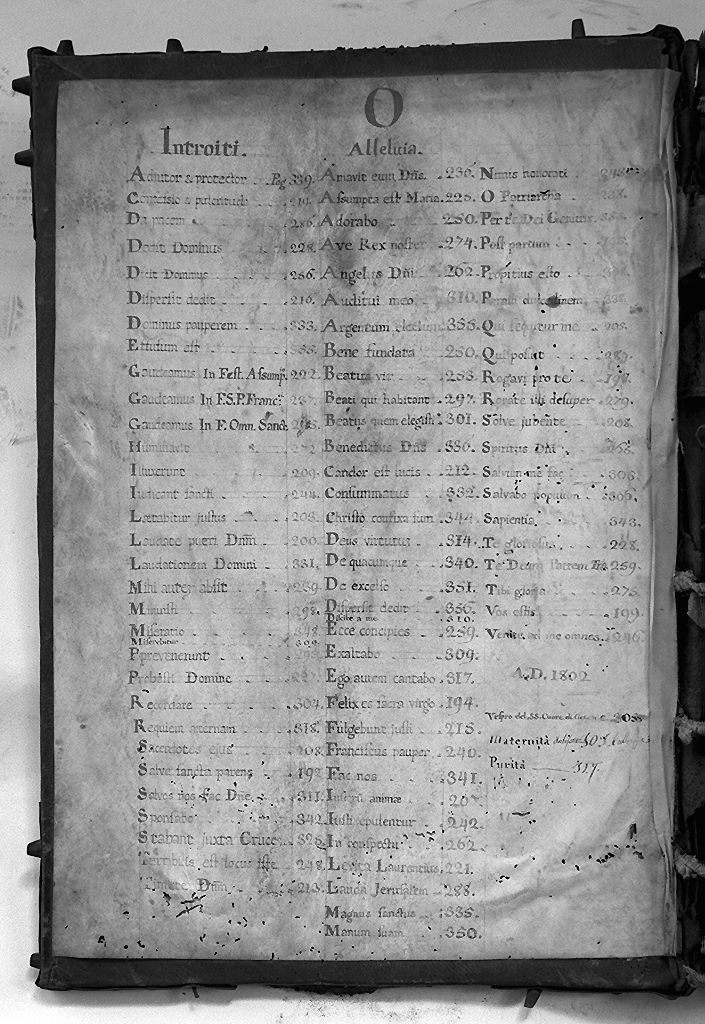 O
Introiti.
Adiutor & protector . . Pag 339.
Da pacem . . 286.
Dedit Dominus . . 228.
Dicit Dominus . . 266.
Dispersit dedit . . 216.
Dominus pauperem . . 333.
Effusum est . .
Gaudeamus In Fest. Assump. 222.
Gaudeamus In F.S.P. Franc.
Gaudeamus In F. Omn. Sanct.
Humiliavit
Illuxerunt . . 209.
Iudicant sancti . . 244.
Lætabitur justus . . 205.
Laudate pueri Dnm . . 200.
Laudationem Domini . . 331.
Mihi autem absit . . 289.
Miseratio . . 348.
Miserebitur
Pprevenerunt
Probasti Domine . .
Recordare . . 304.
Requiem æternam . . 318.
Sacerdotes ejus . . 208.
Salve sancta parens . . 192.
Salvos nos fac Dne. . . 311.
Sponsabo . . 342.
Stabant juxta Crucem . . 325.
Terribilis est locus iste . . 248.
Timete Dnm . . 213.
Alleluia.
Amavit eum Dns. . 236.
Assumpta est Maria. 225.
Adorabo . . 250.
Ave Rex noster . . 274.
Angelus Dni . . 262.
Auditui meo . . 310.
Argentum electum 355.
Bene fundata . . 250.
Beatus vir . . 253.
Beati qui habitant . 297.
Beatus quem elegisti . 301.
Benedictus Dns . 336.
Candor est lucis . . 212.
Consummatus . . 332.
Christo confixa sum . 344.
Deus virtutum . . 314.
De quacunque . . 340.
De excelso . . 351.
Dispersit dedit . . 356.
Discite a me . . 310.
Ecce concipies . . 259.
Exaltabo . . 309.
Ego autem cantabo . 317.
Felix es sacra virgo . 194.
Fulgebunt justi . . 215.
Franciscus pauper . . 240.
Fac nos . . 341.
animæ . . 207.
Iusti epulentur . . 242.
In conspectu . . 262.
Levita Laurentius. 221.
Lauda Jerusalem . . 288.
Magnus sanctus . . 335.
Manum suam . . 350.
Nimis honorati . . 248.
O Patriarcha . . 238.
Per te Dei Genitrix
Post partum . .
Propitius esto . .
Qui sequitur me . . 205.
Qui posuit . . 289.
Rogavi pro te . . 198.
Rorate cæli desuper . . 279.
Solve jubente . . 208.
Spiritus Dni . . 268.
Salvum me fac . . 305.
Salvabo populum . . 306.
Sapientia . . 343.
Te gloriosus . . 228.
Te Deum Patrem . 259.
Tibi gloria . . 275.
Vos estis . . 199.
Venite ad me omnes . 246.
A.D. 1802
Vespro del SS. Cuore di
Maternità
Purità 317.